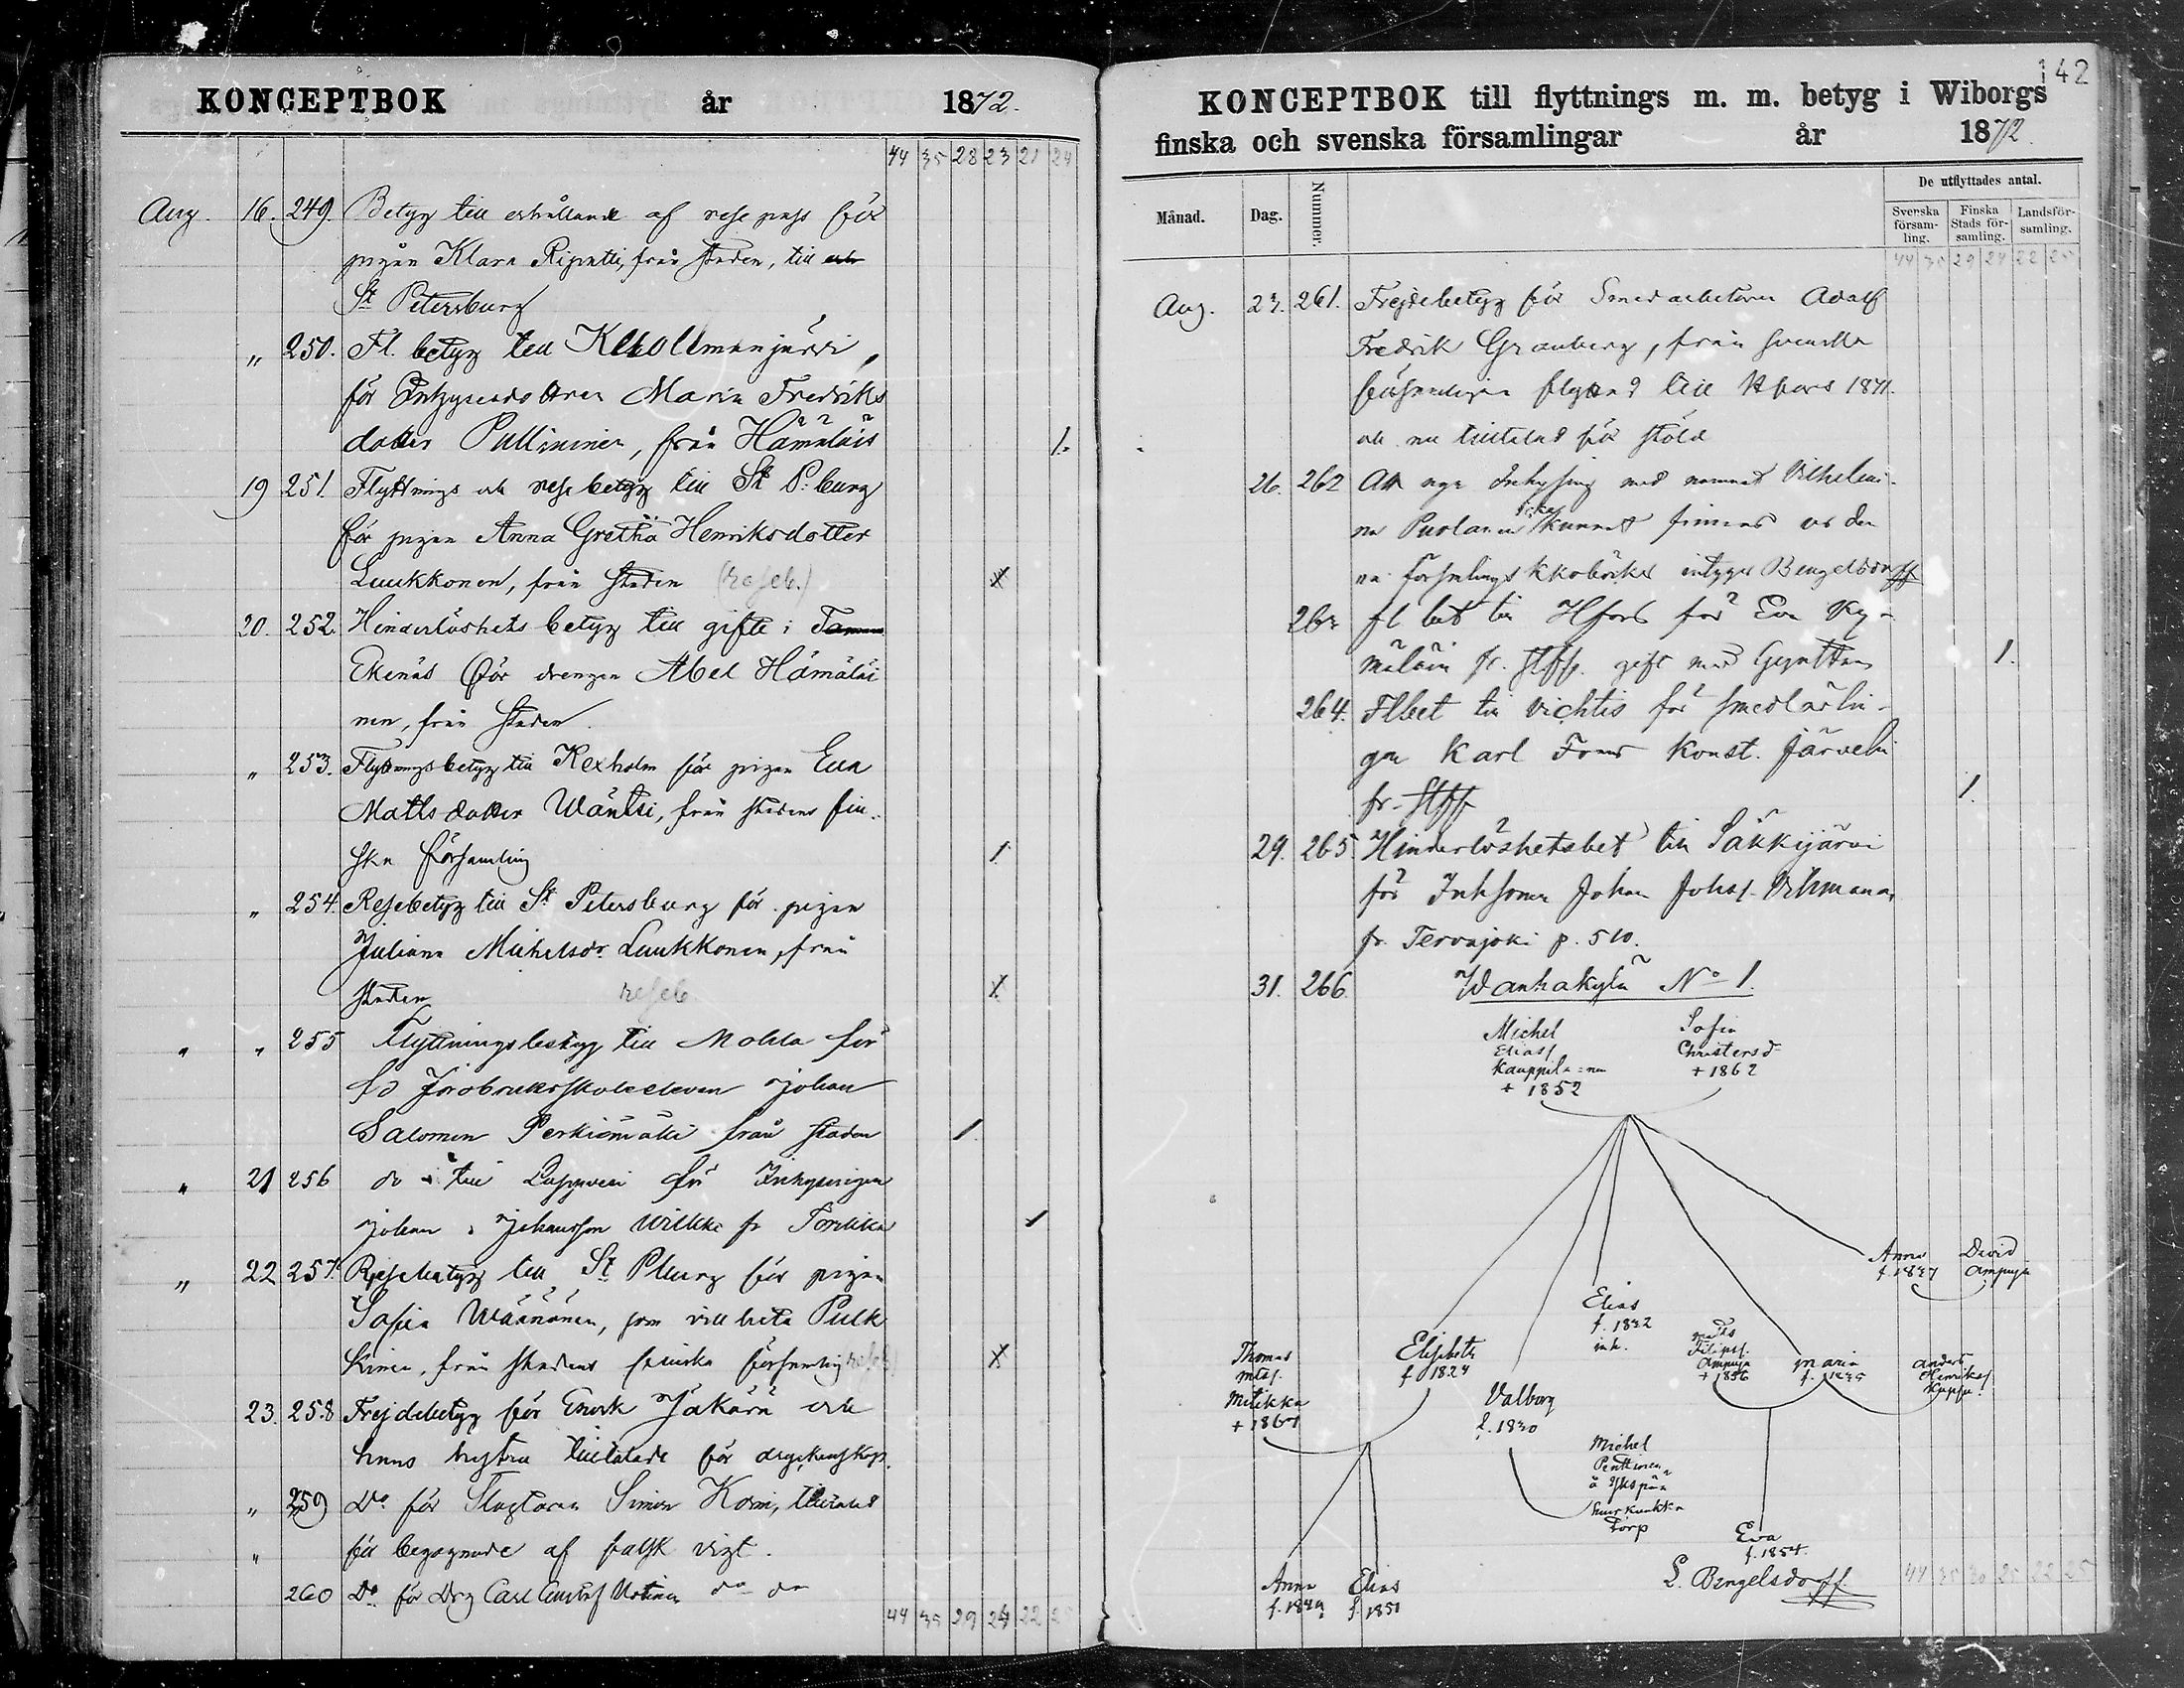 KONCEPTBOK år 1872.
44 35 28 23 21 24
Aug. 16. 249. Betyg till erhållande af rese pass för
pigan Klara Ripatti, från staden, till
St Petersburg
" 250. Fl. betyg till
för Inhysesdottren Maria Fredriks
dotter Pullininen, från Hämäläis 1.
19 251. Flyttnings och resebetyg till St P:burg
för pigan Anna Gretha Henriksdotter
Luukkonen, från staden (reseb.) X
20. 252. Hinderlöshets betyg till gifte i
Ekenäs för drengen Abel Hämäläi
nen, från staden.
" 253. Flyttningsbetyg till Kexholm för pigan Eva
Mattsdotter Wäntsi, från stadens fin-
ska församling 1.
" 254. Resebetyg till St Petersburg för pigan
Juliana Michelsdr Luukkonen, från
staden reseb X
" " 255 Flyttningsbetyg till Mohla för
fd Jordbruksskoleeleven Johan
Salomon Perkiömäki från staden 1.
" 21 256 do till Lappvesi för Inhysingen
Johan Johansson Wilkki fr 1
" 22 257. Resebetyg till St Pburg för pigan
Sofia Wäänänen, som vill heta Pulk
kinen, från stadens finska församling reseb) X
23. 258 Frejdebetyg för Enok Jäkärä och
hans hustru tilltalade för dryckenskap.
" 259 Do för Slagtaren Simon Kosmi, tilltalad
" för begagnade af falsk vigt.
260 Do för Drg Carl Gustaf do do
44 35 29 24 22 25
142
KONCEPTBOK till flyttnings m. m. betyg i Wiborgs
finska och svenska församlingar år 1872.
Månad. Dag. Nummer. De utflyttades antal.
Svenska församling. Finska Stads församling. Landsförsamling.
44 35 29 24 22 25
Aug. 23. 261. Frejdebetyg för Smedarbetaren Adolf
Fredrik Granberg, från svenska
församlingen flyttad till Hfors 1871.
och nu tilltalad för stöld
26. 262 Att nga Inhysing med namnet Vilhelmi-
na Puolanen icke kunnat finnas ur den
na församlings kkoböcker intygar Bengelsdorff
263 fl bet till Hfors för Eva Ky-
mäläin fr. Stff. gift med 1.
264. Flbet till Vichtis för smedlärlin-
gen Karl Konst. Järvelin
fr. Stff 1.
29. 265. Hinderlöshetsbet till Säkkijärvi
för Inhsonen Johan Johs. Vihmanen
fr. Tervajoki p. 510.
31. 266. Wanhakylä No 1.
Michel Sofia
Eliass. Christersd
Kauppi + 1862
+ 1852
Anna David
f. 1837 Ampuja
Elias
f. 1832
inh.
Thomas Elisabeth Matts Maria Anders
Mtss. f. 1824 Filipss. f. 1835 Henrikss.
Mitikka Ampuja
+ 1867 + 1856
Valborg
f. 1830
Michel
Penttinen
torp
Eva
f. 1854.
Anna Elias
f. 1849 f. 1851
L. Bengelsdorff
44 35 30 25 22 25